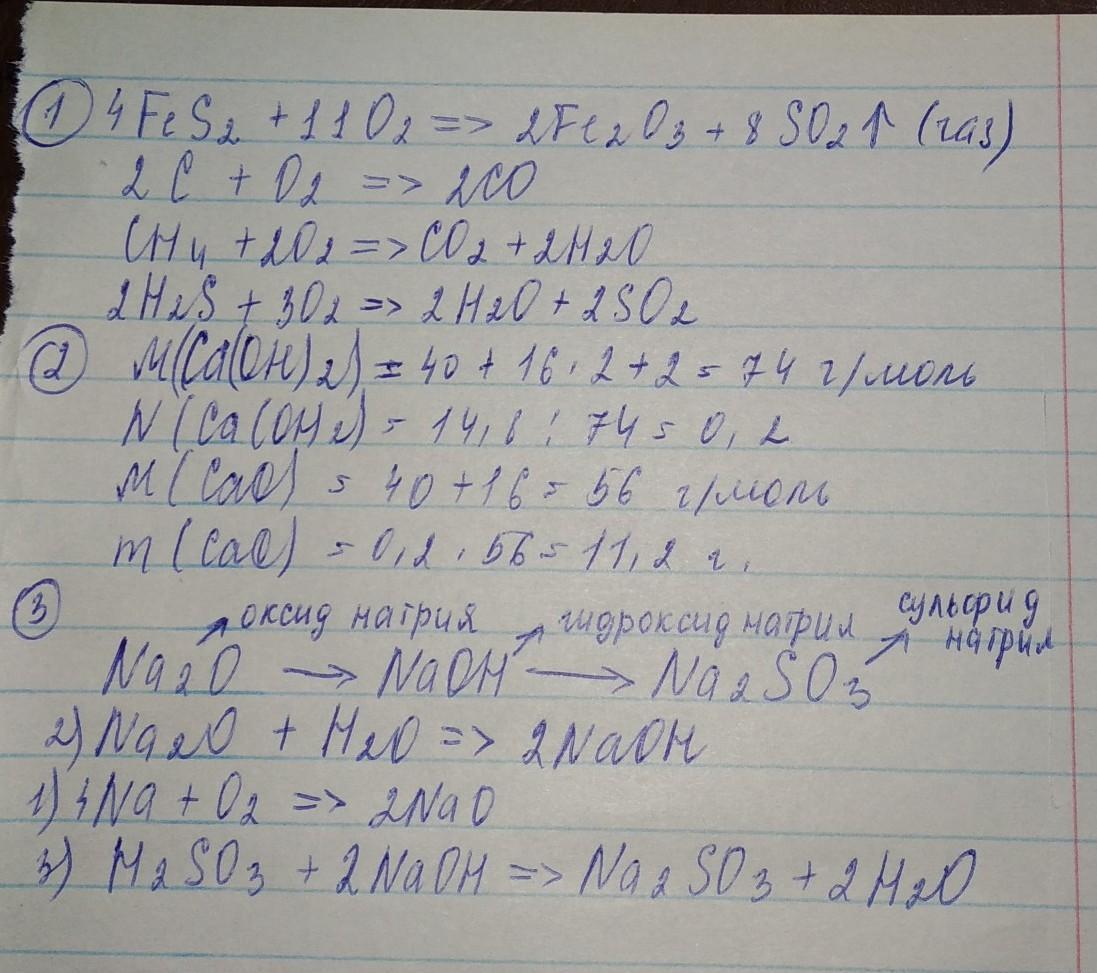 1 4FeS2 + 11O2 => 2Fe2O3 + 8SO2↑ (газ)
2C + O2 => 2CO
CH4 + 2O2 => CO2 + 2H2O
2H2S + 3O2 => 2H2O + 2SO2
2 M(Ca(OH)2) = 40 + 16 · 2 + 2 = 74 г/моль
N(Ca(OH2) = 14,8 : 74 = 0,2
M(CaO) = 40 + 16 = 56 г/моль
m(CaO) = 0,2 · 56 = 11,2 г.
3 оксид натрия гидроксид натрия сульфид натрия
Na2O → NaOH → Na2SO3
2) Na2O + H2O => 2NaOH
1) 4Na + O2 => 2NaO
3) H2SO3 + 2NaOH => Na2SO3 + 2H2O